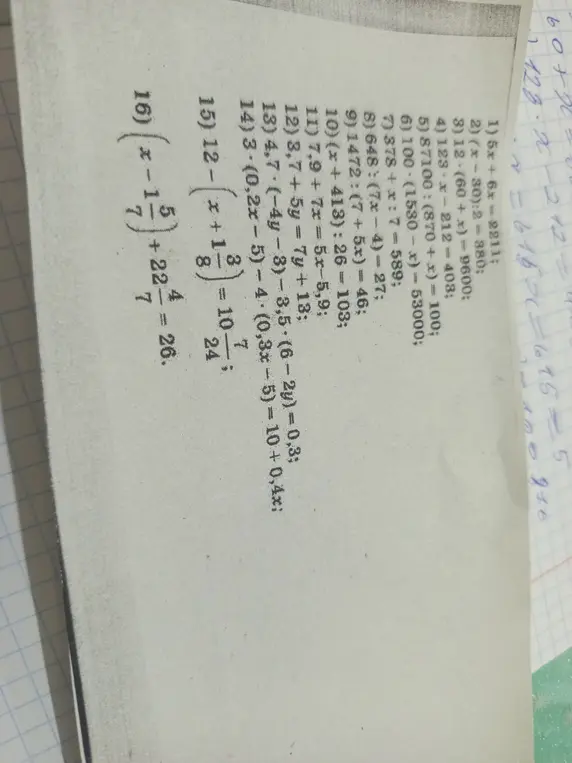 1) 5x + 6x = 2211;
2) (x − 30):2 = 380;
3) 12 · (60 + x) = 9600;
4) 123 · x − 212 = 403;
5) 87100 : (870 + x) = 100;
6) 100 · (1530 − x) = 53000;
7) 378 + x : 7 = 589;
8) 648 : (7x − 4) = 27;
9) 1472 : (7 + 5x) = 46;
10) (x + 413) : 26 = 103;
11) 7,9 + 7x = 5x−5,9;
12) 3,7 + 5y = 7y + 13;
13) 4,7 · (−4y − 3) − 3,5 · (6 − 2y) = 0,3;
14) 3 · (0,2x − 5) − 4 · (0,3x − 5) = 10 + 0,4x;
15) 12 − (x + 1 3/8) = 10 7/24;
16) (x − 1 5/7) + 22 4/7 = 26.